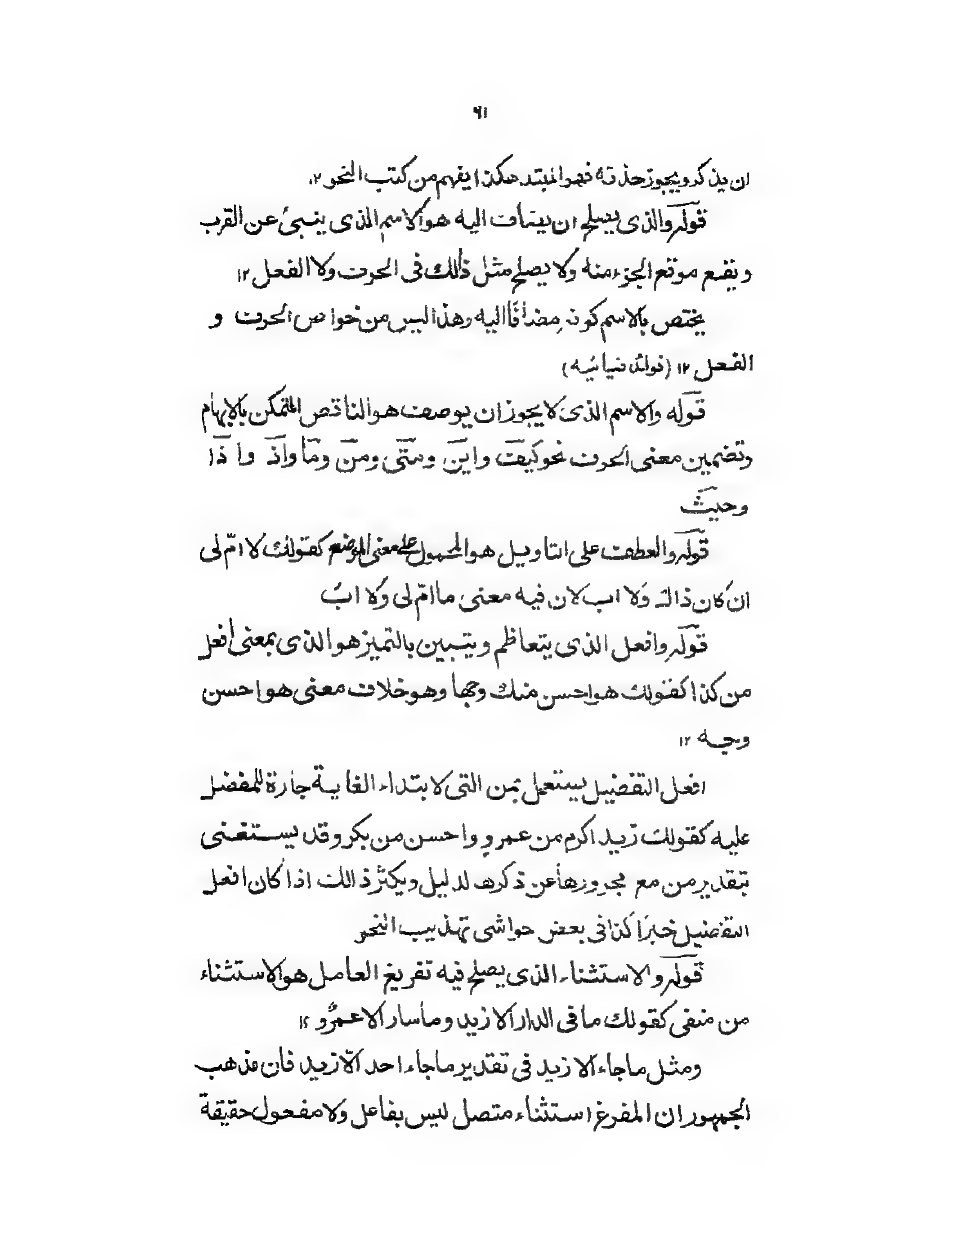 ٦١
ان يذكر ويجوز حذفه فهو المبتد هكذا يفهم من كتب النحو ١٢
قوله والذى يصلح ان يضاف اليه هو الاسم الذى ينبئ عن القرب
ويقع موقع الجزء منه ولا يصلح مثل ذلك فى الحرف ولا الفعل ١٢
يختص بالاسم كونه مضافًا اليه وهذا ليس من خواص الحرف و
الفعل ١٢ (فوائد ضيائيه)
قوله والاسم الذى لا يجوز ان يوصف هو الناقص المتمكن بالابهام
وتضمين معنى الحرف نحو كيف واين ومتى ومن وما واذ وا ذا
وحيث
قوله والعطف على التاويل هو المحمول على معنى الموضع كقولك لا امّ لى
ان كان ذالك ولا اب لان فيه معنى ما امّ لى ولا ابٌ
قوله وافعل الذى يتعاظم ويتبين بالتميز هو الذى بمعنى افعل
من كذا كقولك هو احسن منك وجها وهو خلاف معنى هو احسن
وجه ١٢
افعل التفضيل يستعمل بمن التى لابتداء الغاية جارة للمفضل
عليه كقولك زيد اكرم من عمرو واحسن من بكر وقد يستغنى
بتقدير من مع مجرورها عن ذكرها لدليل ويكثر ذالك اذا كان افعل
التفضيل خبرًا كذا فى بعض حواشى تهذيب النحو
قوله والاستثناء الذى يصلح فيه تفريغ العامل هو الاستثناء
من منفى كقولك ما فى الدار الا زيد وما سار الا عمرٌو ١٢
ومثل ما جاء الا زيد فى تقدير ما جاء احد الّا زيد فان مذهب
الجمهور ان المفرغ استثناء متصل ليس بفاعل ولا مفعول حقيقة